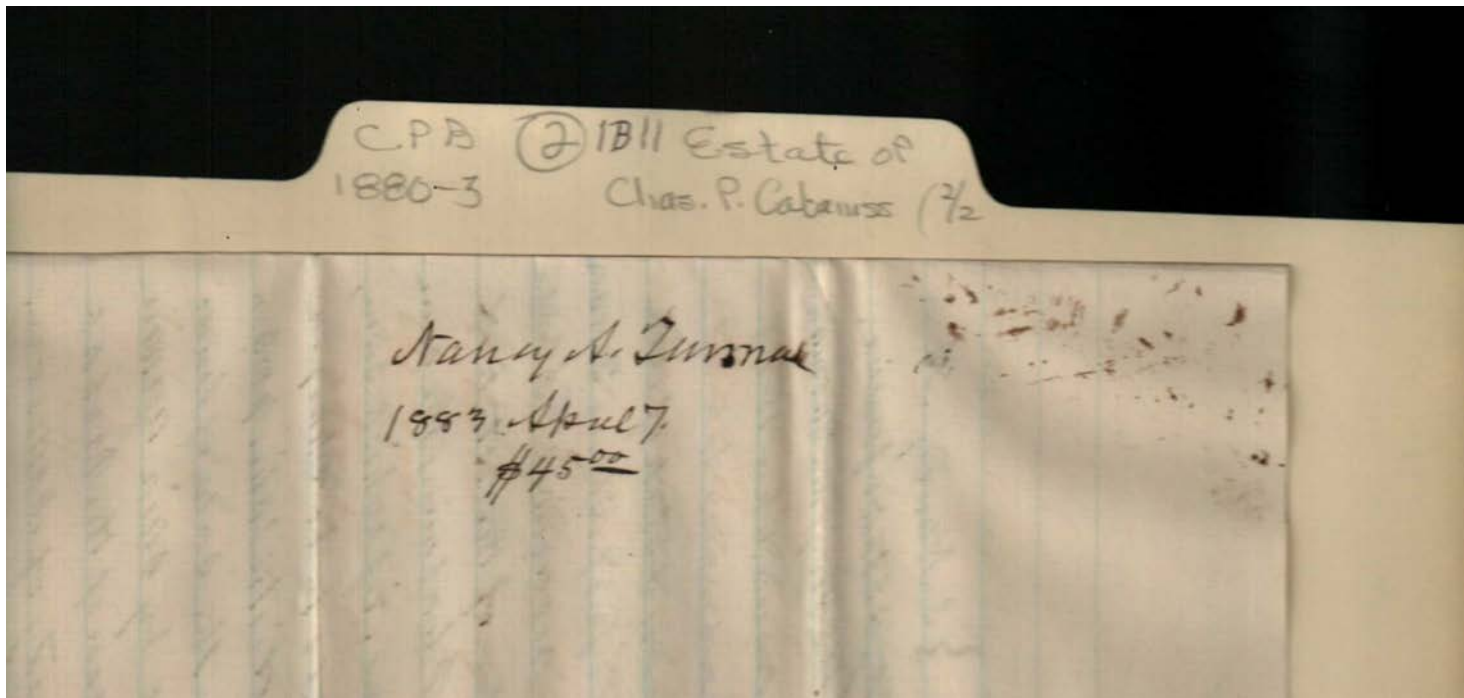 C.P.B ② 1B11 Estate of
1880-3 Chas. P. Cabaniss (2/2
Nancy A. Turman
1883 April 7.
$45 00